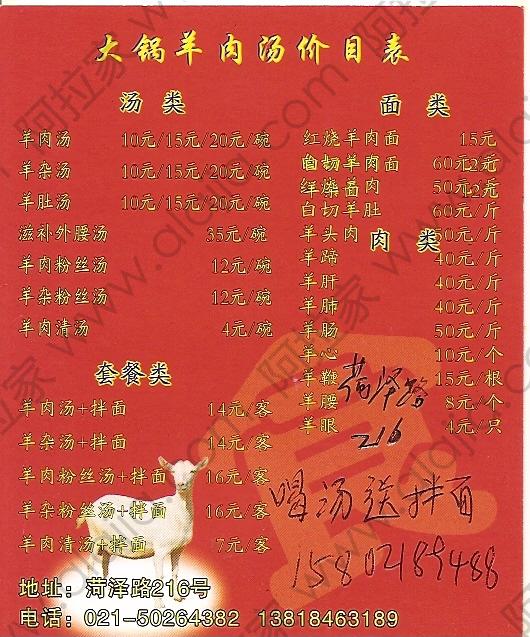 大锅羊肉汤价目表
汤类
羊肉汤 10元/15元/20元/碗
羊杂汤 10元/15元/20元/碗
羊肚汤 10元/15元/20元/碗
滋补外腰汤 35元/碗
羊肉粉丝汤 12元/碗
羊杂粉丝汤 12元/碗
羊肉清汤 4元/碗
套餐类
羊肉汤+拌面 14元/客
羊杂汤+拌面 14元/客
羊肉粉丝汤+拌面 16元/客
羊杂粉丝汤+拌面 16元/客
羊肉清汤+拌面 7元/客
面类
红烧羊肉面 15元
白切羊肉 60元/斤
50元/斤
白切羊肚 60元/斤
肉类
羊头肉 50元/斤
羊蹄 40元/斤
羊肝 40元/斤
羊肺 40元/斤
羊肠 50元/斤
羊心 10元/个
羊鞭 15元/根
羊腰 8元/个
羊眼 4元/只
菏泽路
216
喝汤送拌面
15802189488
地址：菏泽路216号
电话：021-50264382 13818463189
阿拉家 www.alajia.com